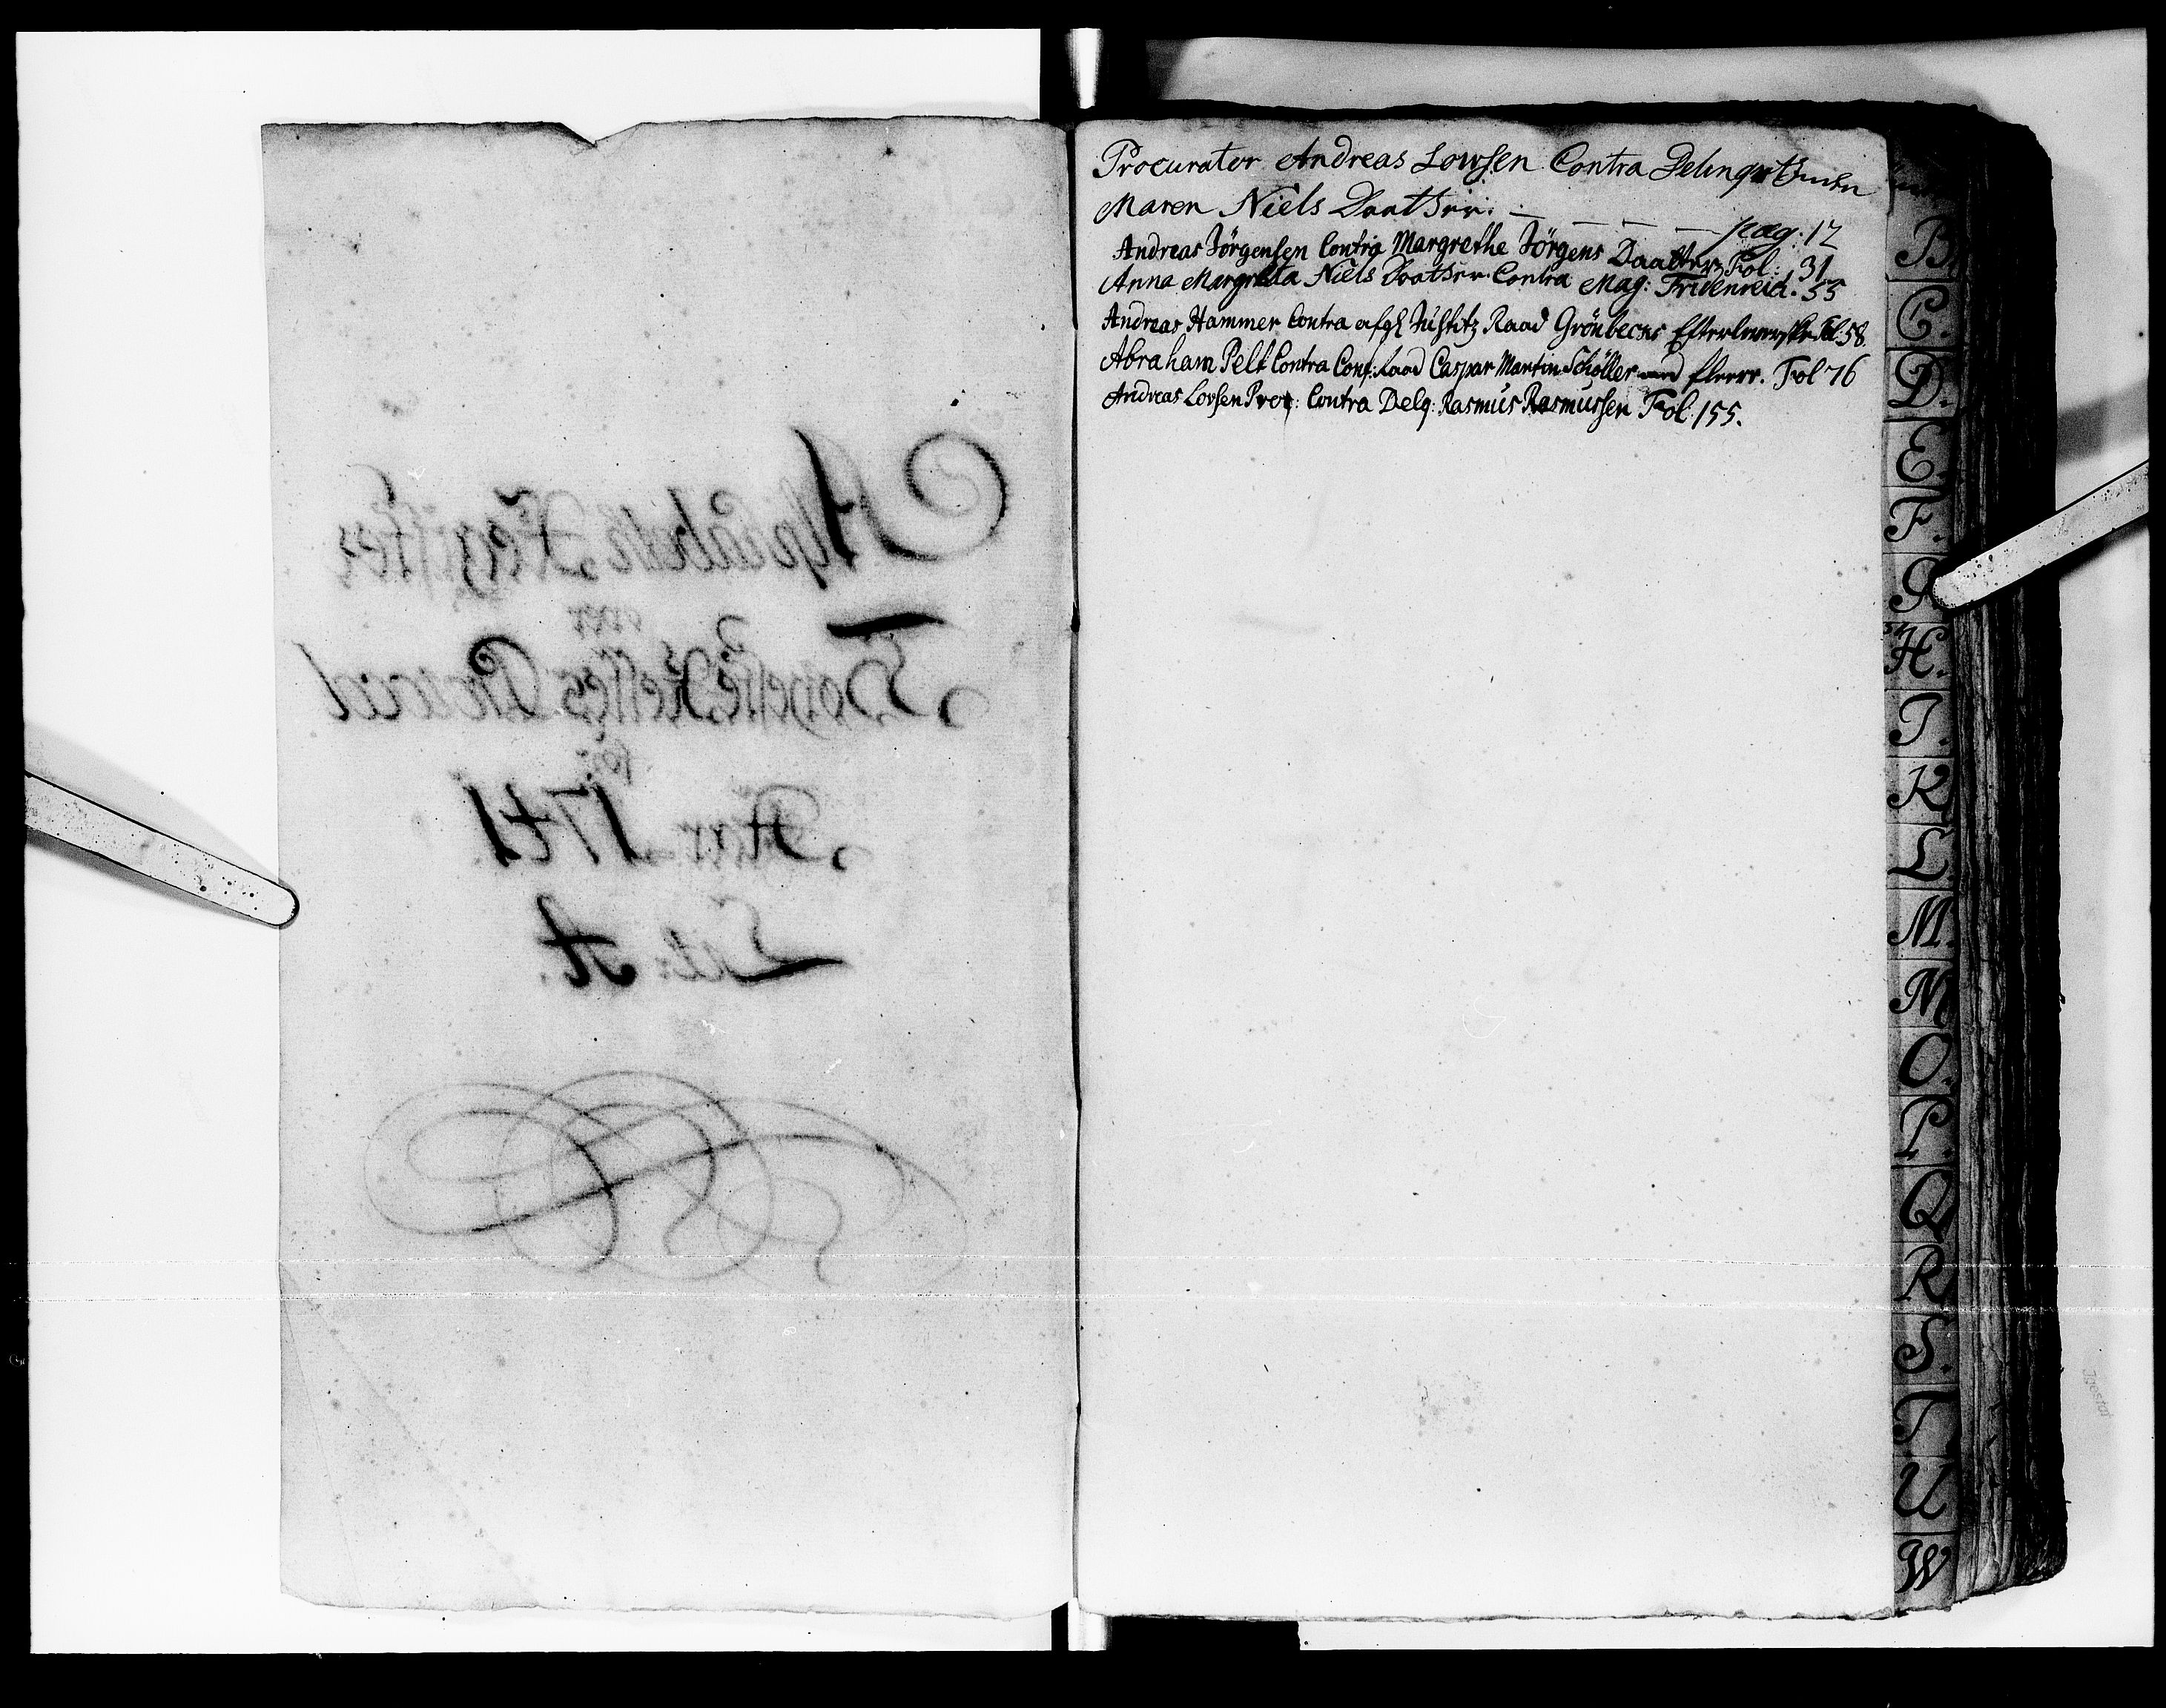 Alphabetisk Register
over
HøyesteRettes Vota
for
Aar 1741
Litr: A.
Procurator Andreas Lowsen Contra Delinqvetinden
Maren Niels Daatter. — — — — pag: 12
Andreas Jörgensen Contra Margrethe Jörgens Daatter, Fol: 31
Anna Margreta Niels Daatter Contra Mag: Fridenreich. 55
Andreas Hammer Contra afgl Justitz Raad Grönbechs Efterleverske Fol: 58.
Abraham Pelt Contra Conf: Raad Caspar Martin Schöller med fleere. Fol 76
Andreas Lovsen Proc: Contra Delq: Rasmus Rasmussen Fol: 155.
B.
C.
D.
E.
F.
G
H.
I.
K
L
M.
N
O.
P.
Q
R
S.
T
U
W